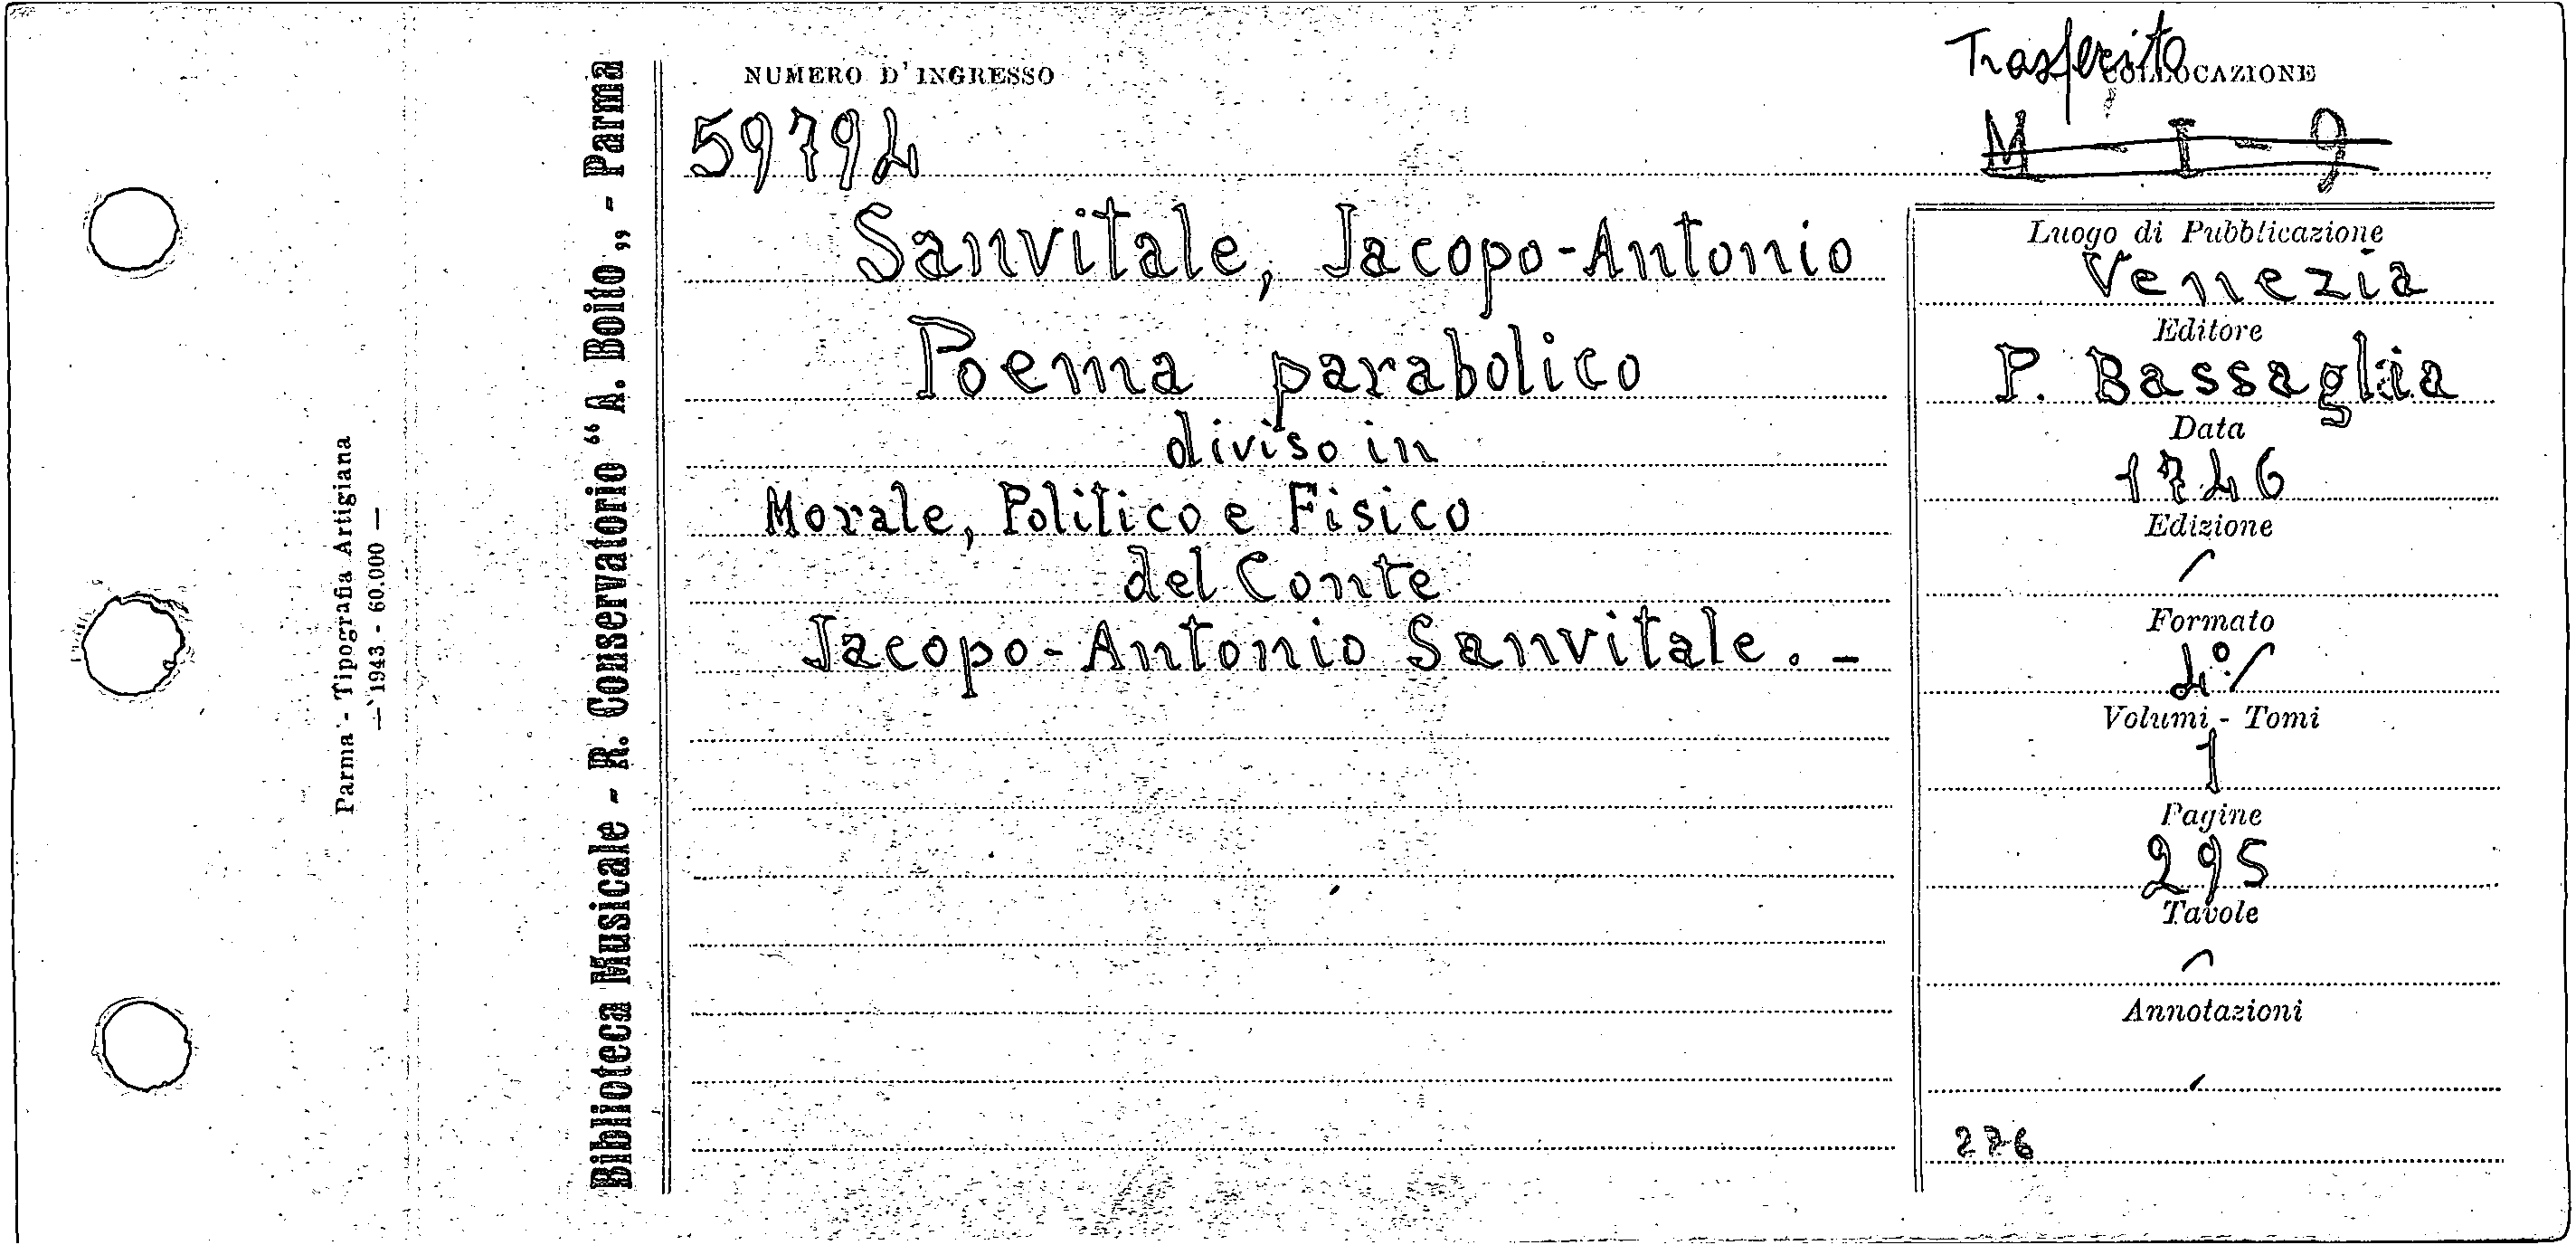 Parma - Tipografia Artigiana
— 1943 - 60.000 —
Biblioteca Musicale - R. Conservatorio “A. Boito„ - Parma
NUMERO D'INGRESSO
59794
Trasferito
COLLOCAZIONE
M - I - 9
Sanvitale, Jacopo-Antonio
Poema parabolico
diviso in
Morale, Politico e Fisico
del Conte
Jacopo-Antonio Sanvitale. -
Luogo di Pubblicazione
Venezia
Editore
P. Bassaglia
Data
1746
Edizione
/
Formato
4º/
Volumi - Tomi
1
Pagine
295
Tavole
Annotazioni
276